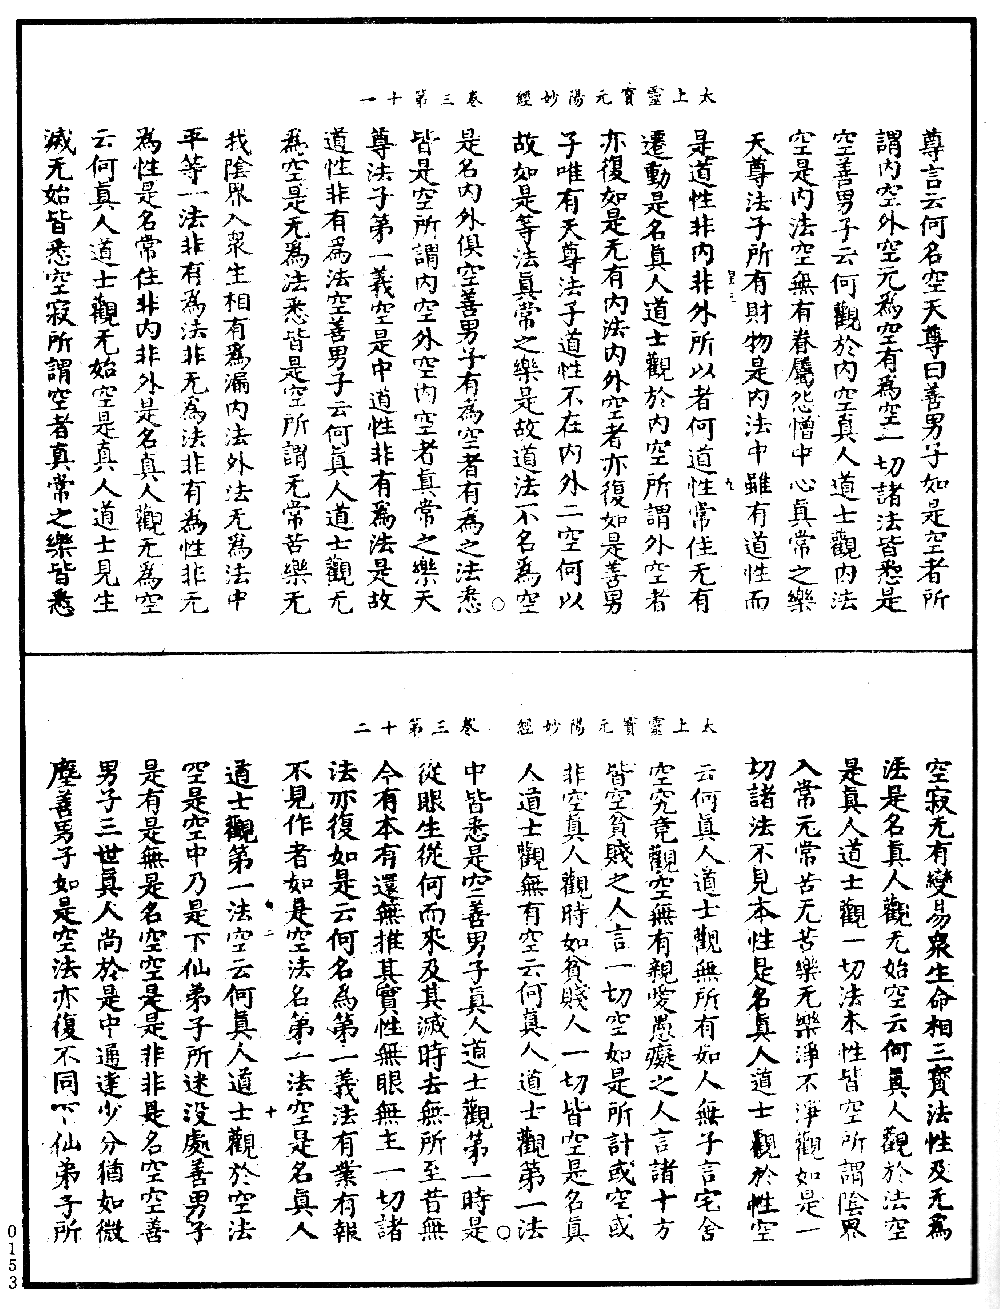 太上靈寶元陽妙經　卷三第十一
尊言云何名空天尊曰善男子如是空者所
謂内空外空元為空有為空一切諸法皆悉是
空善男子云何觀於内空真人道士觀内法
空是内法空無有眷屬怨憎中心真常之樂
天尊法子所有財物是内法中雖有道性而
是道性非内非外所以者何道性常住无有
遷動是名真人道士觀於内空所謂外空者
亦復如是无有内法内外空者亦復如是善男
子唯有天尊法子道性不在内外二空何以
故如是等法真常之樂是故道法不名為空
是名内外俱空善男子有為空者有為之法悉
皆是空所謂内空外空内空者真常之樂天
尊法子第一義空是中道性非有為法是故
道性非有為法空善男子云何真人道士觀无
為空是无為法悉皆是空所謂无常苦樂无
我陰界入衆生相有為漏内法外法无為法中
平等一法非有為法非无為法非有為性非无
為性是名常住非内非外是名真人觀无為空
云何真人道士觀无始空是真人道士見生
滅无始皆悉空寂所謂空者真常之樂皆悉
太上靈寶元陽妙經　卷三第十二
空寂无有變易衆生命相三寶法性及无為
法是名真人觀无始空云何真人觀於法空
是真人道士觀一切法本性皆空所謂陰界
入常元常苦无苦樂无樂淨不淨觀如是一
切諸法不見本性是名真人道士觀於性空
云何真人道士觀無所有如人無子言宅舍
空究竟觀空無有親愛愚癡之人言諸十方
皆空貧賤之人言一切空如是所計或空或
非空真人觀時如貧賤人一切皆空是名真
人道士觀無有空云何真人道士觀第一法
中皆悉是空善男子真人道士觀第一時是
從眼生從何而來及其滅時去無所至昔無
今有本有還無推其實性無眼無主一切諸
法亦復如是云何名為第一義法有業有報
不見作者如是空法名第一法空是名真人
道士觀第一法空云何真人道士觀於空法
空是空中乃是下仙弟子所迷没處善男子
是有是無是名空空是是非非是名空空善
男子三世真人尚於是中通達少分猶如微
塵善男子如是空法亦復不同下仙弟子所
0153